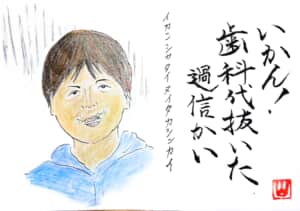 いかん!
歯科代抜いた
過信かい
イカンシカダイヌイタカシンカイ